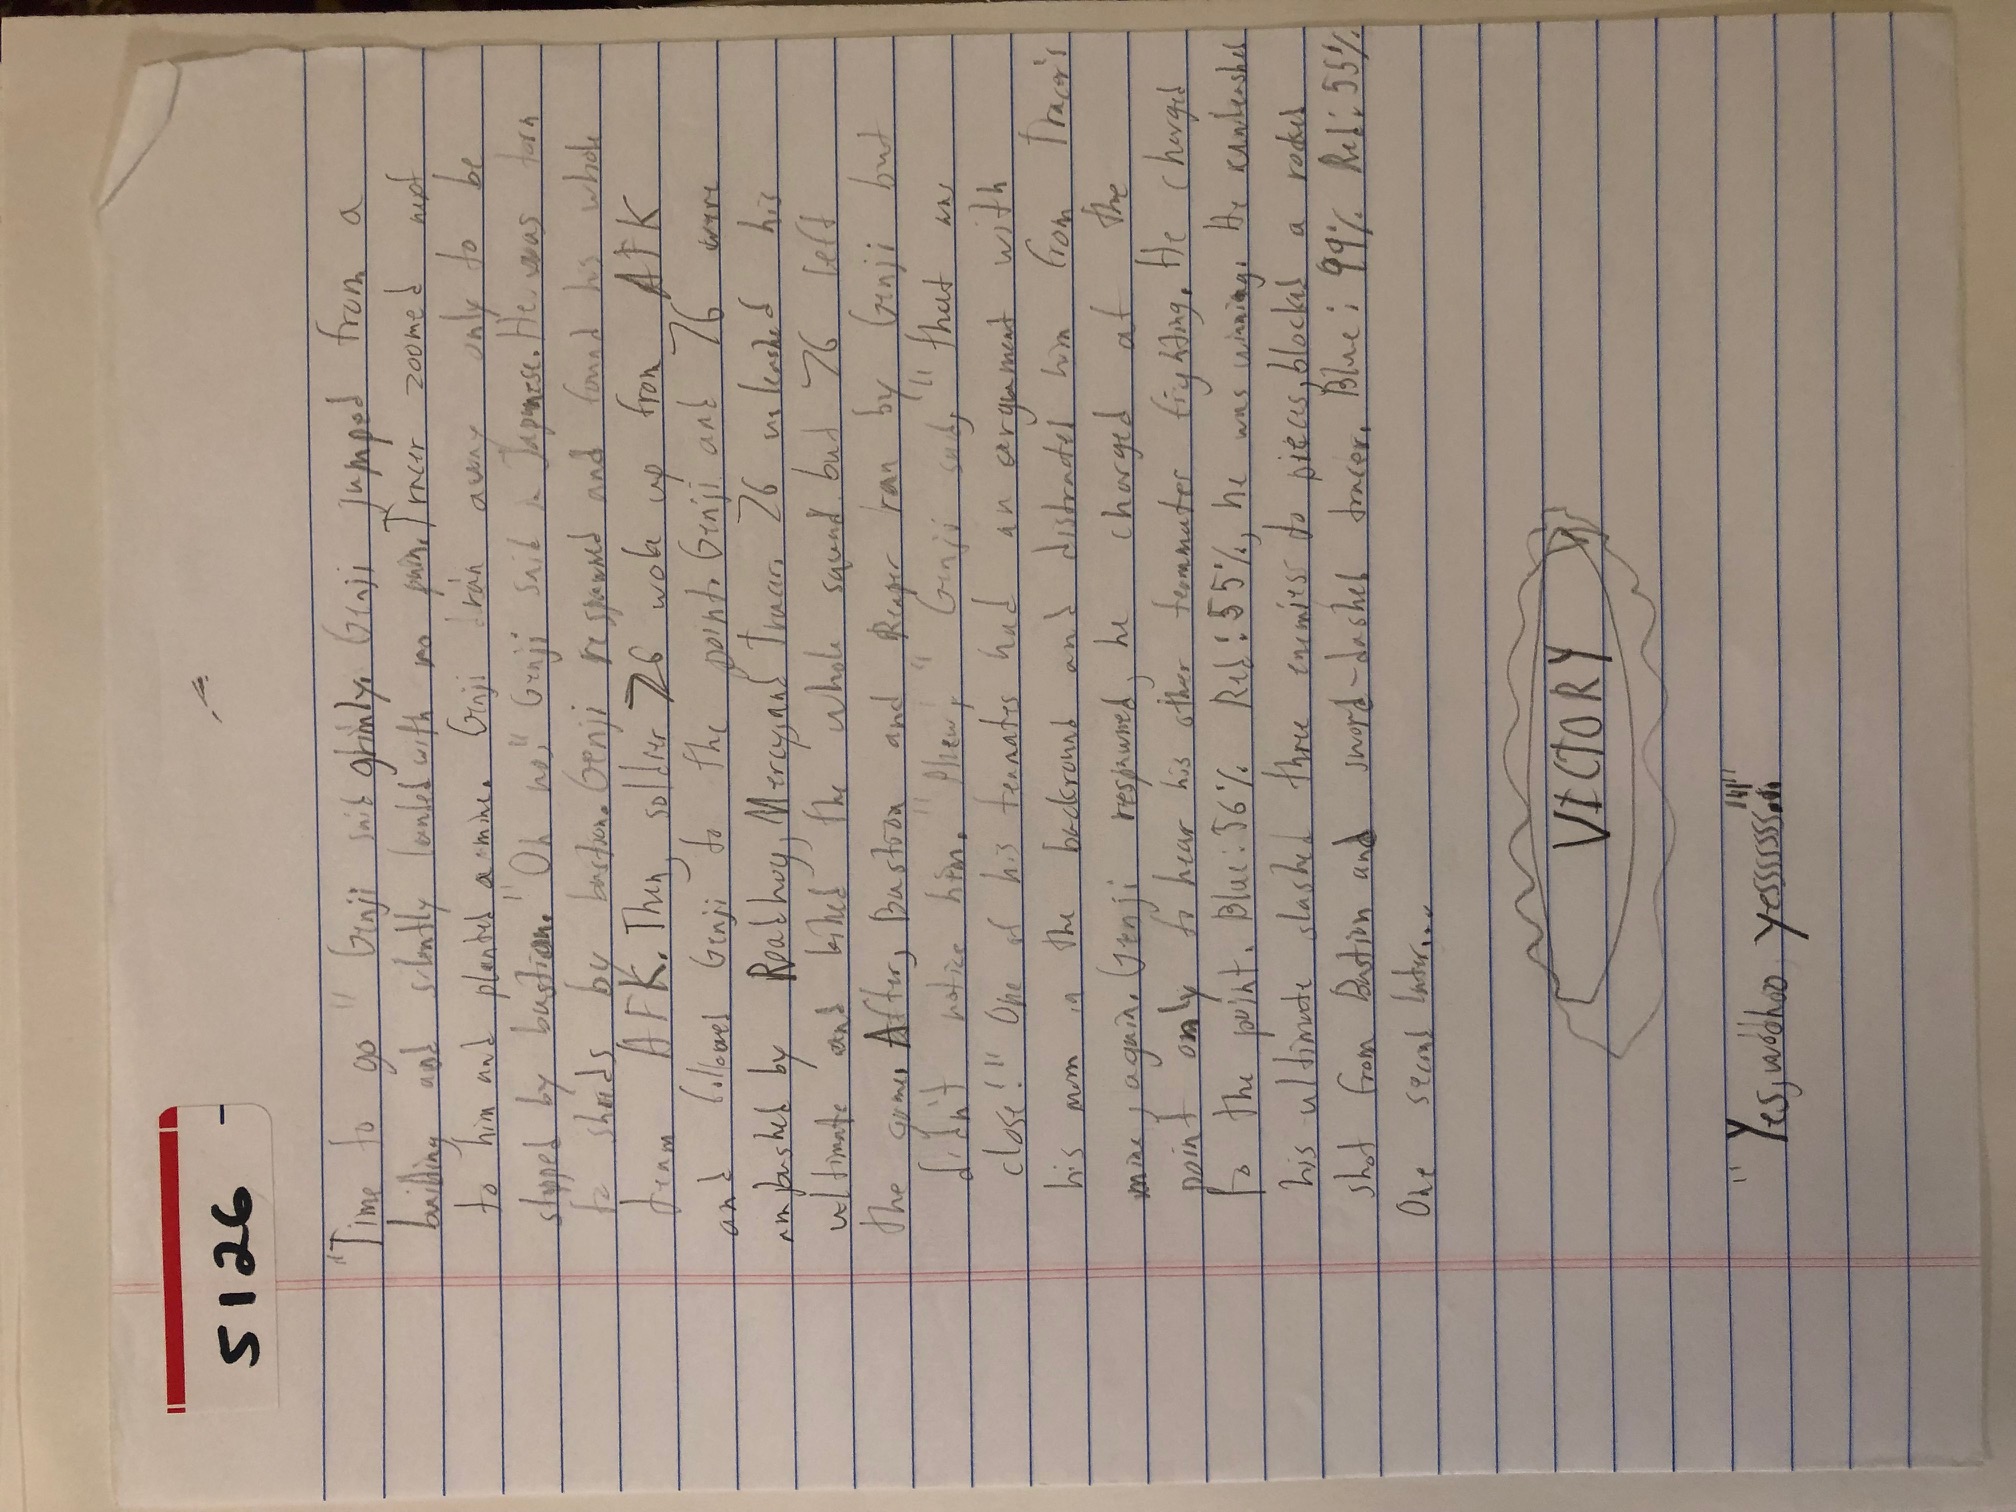 5126
"Time to go" Genji said grimly. Genji jumped from a
building and silently landed with no pain. Tracer zoomed next
to him and planted a mine. Genji ran away only to be
stopped by bastion. "Oh no," Genji said in Japanese. He was torn
to shreds by bastion. Genji respawned and found his whole
team AFK. Then, soldier 76 woke up from AFK
and followed Genji to the point. Genji and 76 were
ambushed by Roadhog, Mercy, and Tracer. 76 unleashed his
ultimate and killed the whole squad but 76 left
the game. After, Bastion and Reaper ran by Genji but
didn't notice him. "Phew," Genji said, "that was
close!" One of his teamates had an argument with
his mom in the backround and distracted him from Tracer's
mine, again. Genji respawned, he charged at the
point only to hear his other teammates fighting. He charged
to the point. Blue: 56% Red: 55%, he was winning. He unleashed
his ultimate slashed three enemiess to pieces, blocked a rocket
shot from Bastion and sword-dashed tracer. Blue: 99% Red: 55%
One second later...
VICTORY
"Yes, woohoo yesssssss!!!"